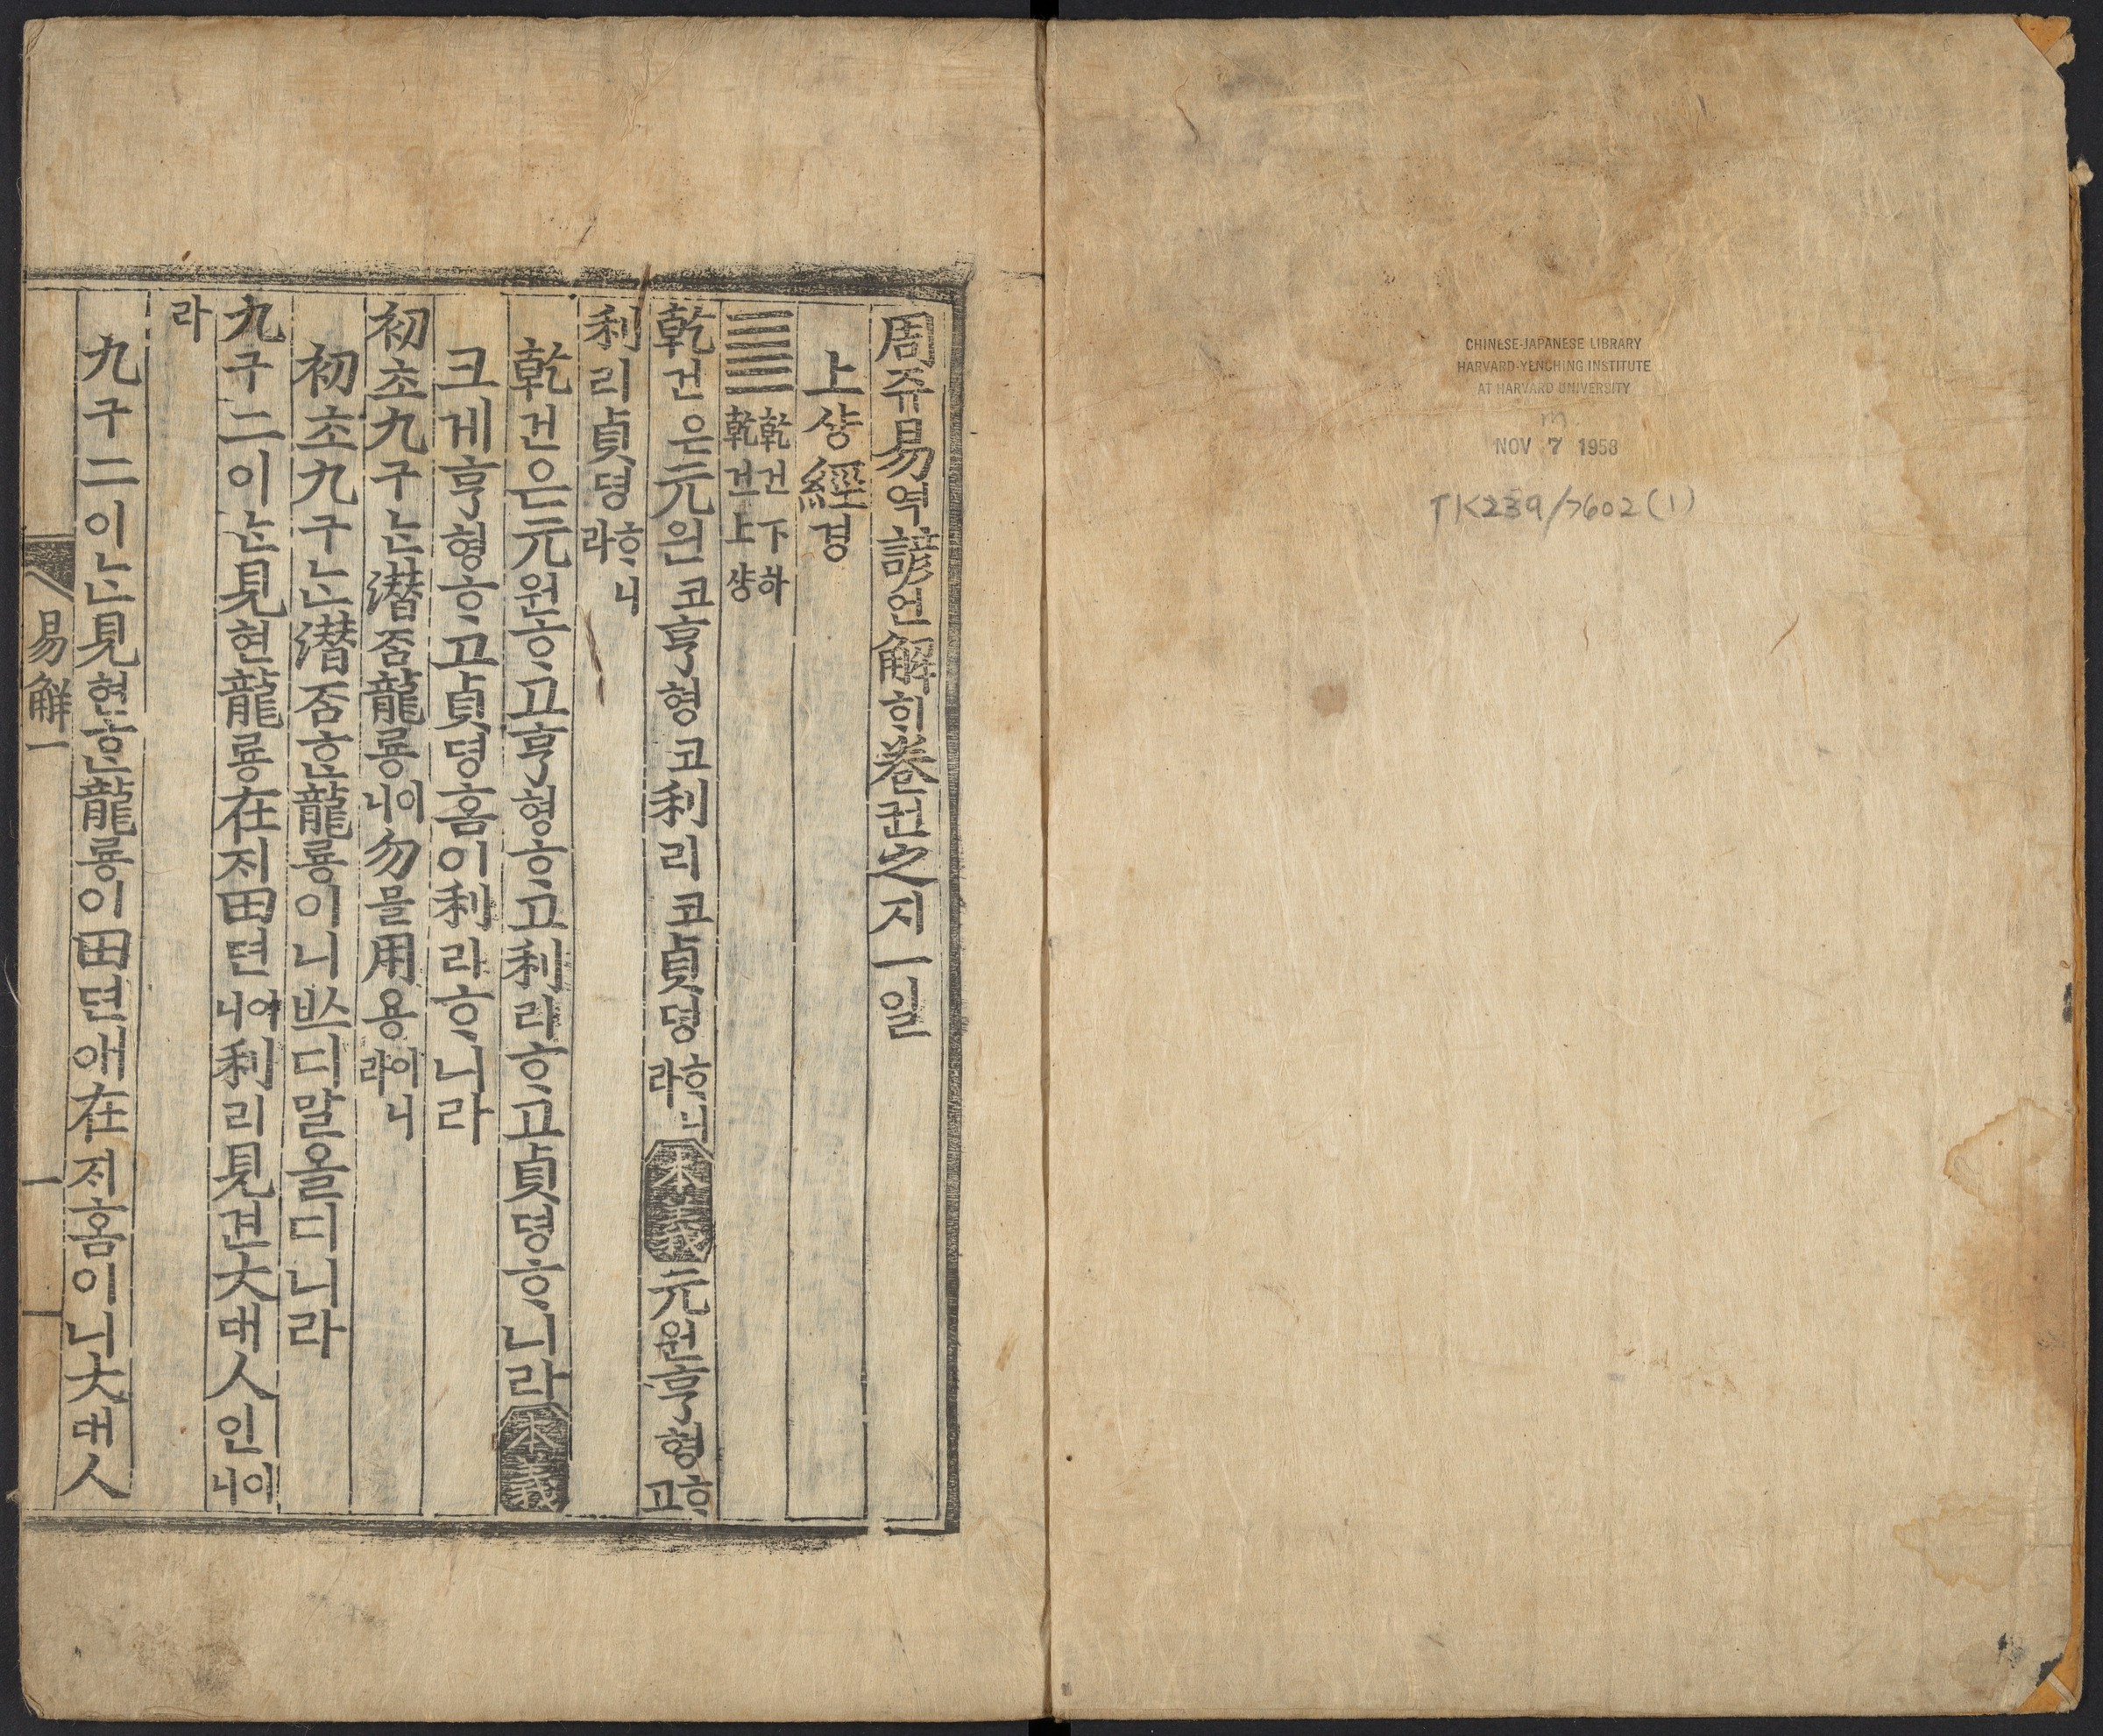 CHINESE-JAPANESE LIBRARY
HARVARD-YENCHING INSTITUTE
AT HARVARD UNIVERSITY
NOV 7 1958
TK239/7602(1)
周쥬易역諺언解ᄒᆡ卷권之지一일
上샹經경
䷀乾건下하乾건上샹
乾건은元원코亨형코利리코貞뎡ᄒᆞ니라本義元원亨형ᄒᆞ고
利리貞뎡ᄒᆞ니라
乾건은元원ᄒᆞ고亨형ᄒᆞ고利리ᄒᆞ고貞뎡ᄒᆞ니라本義
크게亨형ᄒᆞ고貞뎡홈이利리ᄒᆞ니라
初초九구ᄂᆞᆫ潛ᄌᆞᆷ龍룡이니勿믈用용이니라
初초九구ᄂᆞᆫ潛ᄌᆞᆷᄒᆞᆫ龍룡이니ᄡᅳ디말올디니라
九구二이ᄂᆞᆫ見현龍룡在ᄌᆡ田뎐여니利리見견大대人인이니
라
九구二이ᄂᆞᆫ見현ᄒᆞᆫ龍룡이田뎐애在ᄌᆡ홈이니大대人
易解一 一